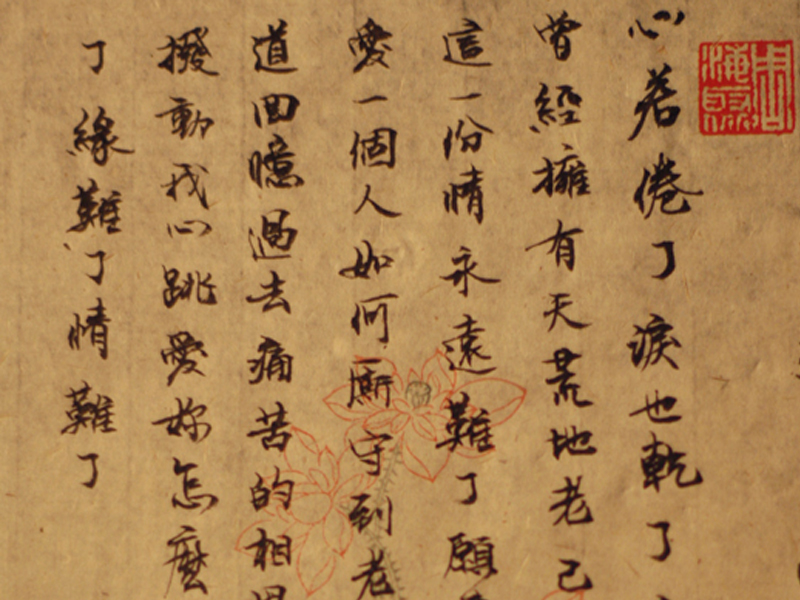 心若倦了淚也乾了
曾經擁有天荒地老已
這一份情永遠難了願
愛一個人如何廝守到老
道回憶過去痛苦的相思
撥動我心跳愛妳怎麼
了緣難了情難了